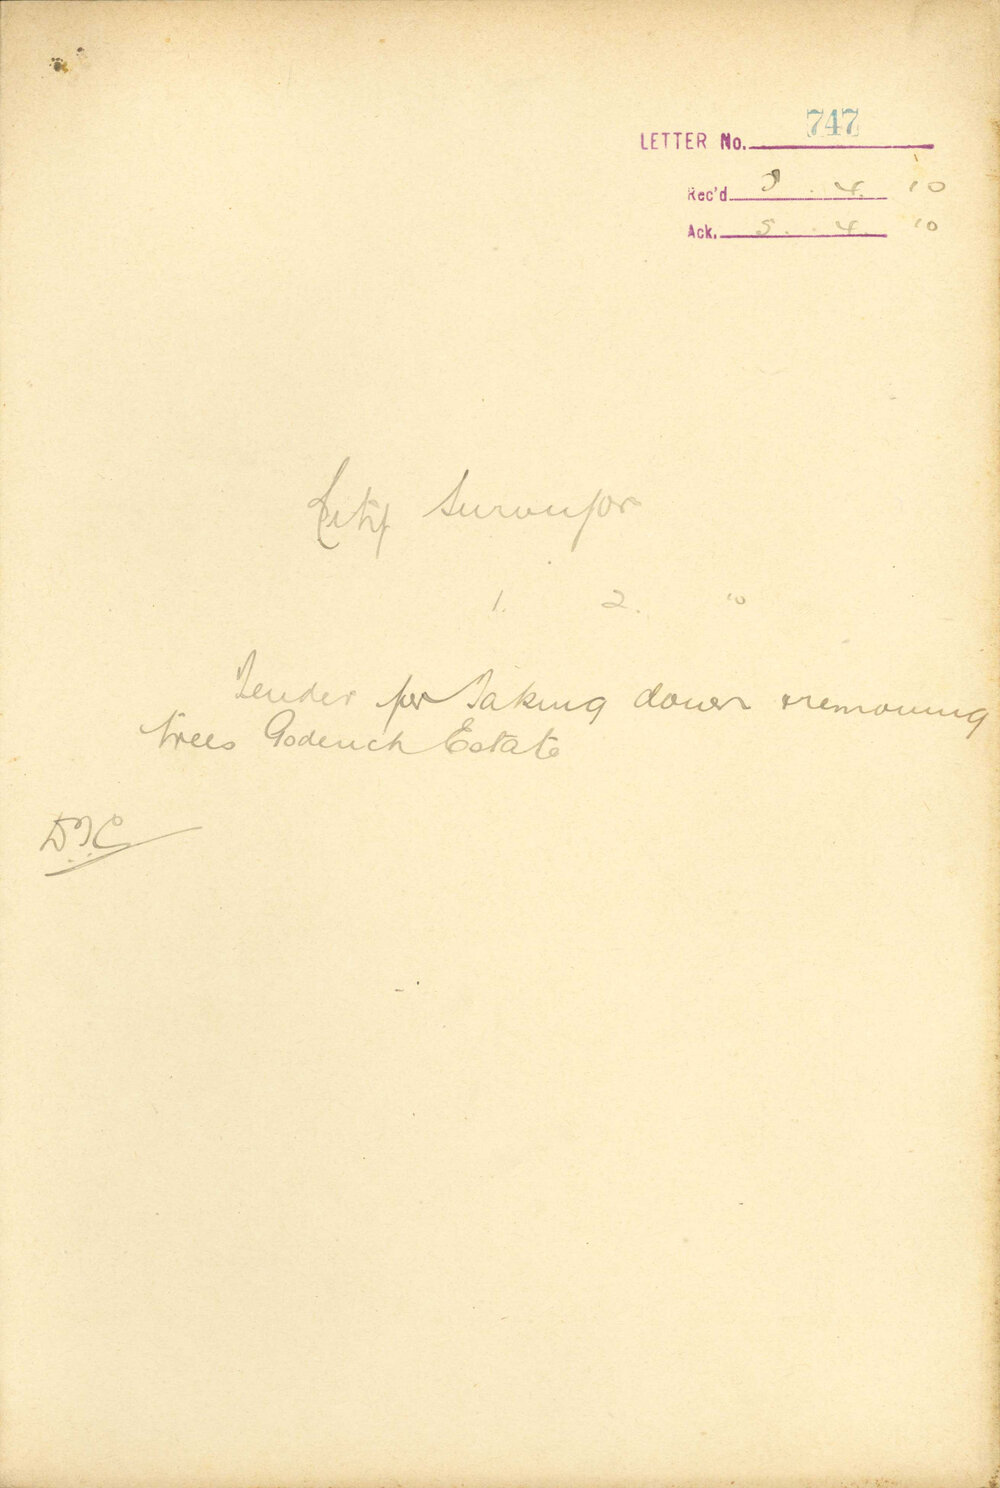 LETTER No. 747
Rec'd 5. 4. 10
Ack. 5. 4. 10
City Surveyor
1. 2. 10
Tender for Taking down & removing
trees Goderich Estate
D.T.C